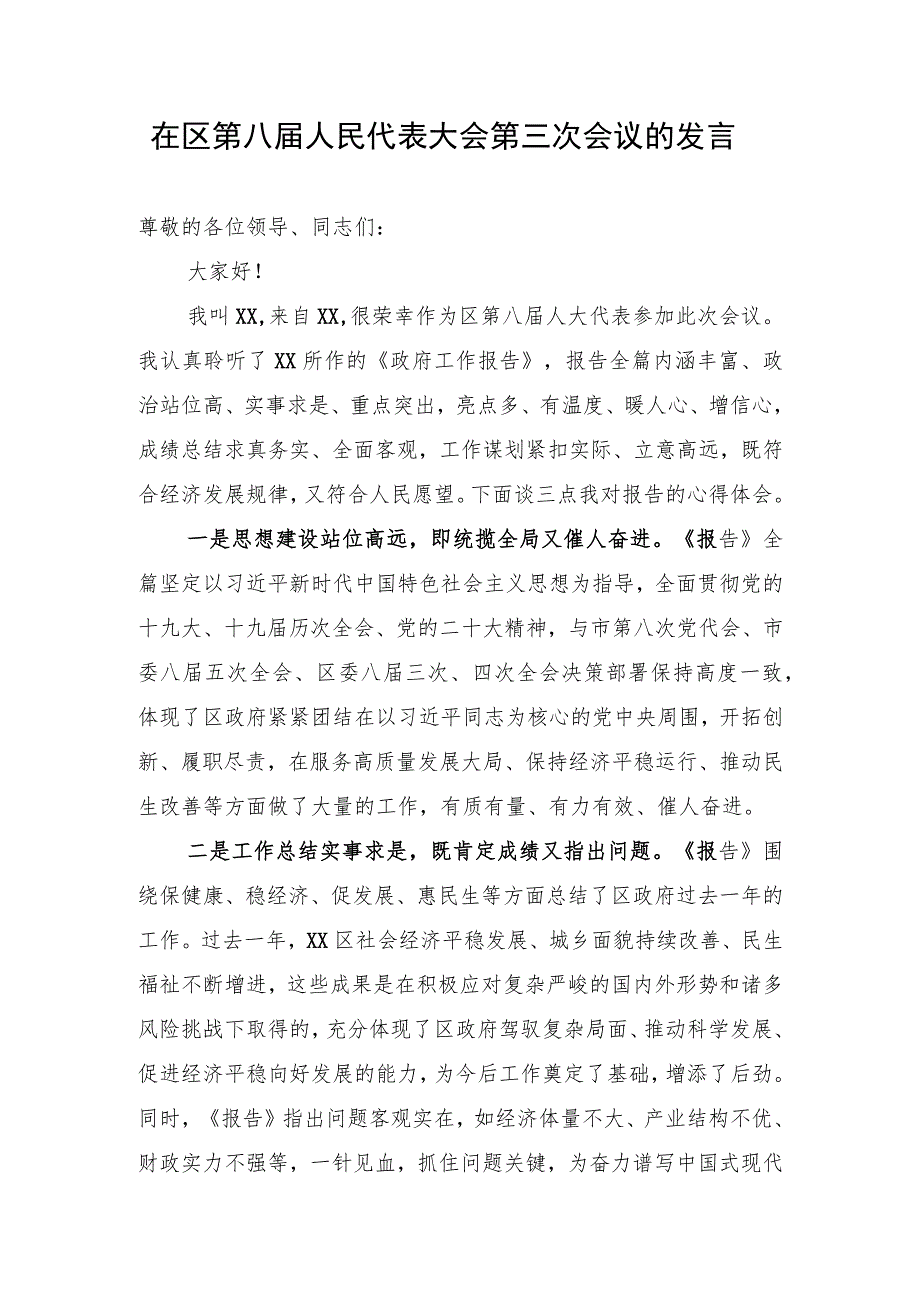 在区第八届人民代表大会第三次会议的发言
尊敬的各位领导、同志们：
大家好！
我叫 XX,来自 XX,很荣幸作为区第八届人大代表参加此次会议。
我认真聆听了 XX 所作的《政府工作报告》，报告全篇内涵丰富、政
治站位高、实事求是、重点突出，亮点多、有温度、暖人心、增信心，
成绩总结求真务实、全面客观，工作谋划紧扣实际、立意高远，既符
合经济发展规律，又符合人民愿望。下面谈三点我对报告的心得体会。
一是思想建设站位高远，即统揽全局又催人奋进。《报告》全
篇坚定以习近平新时代中国特色社会主义思想为指导，全面贯彻党的
十九大、十九届历次全会、党的二十大精神，与市第八次党代会、市
委八届五次全会、区委八届三次、四次全会决策部署保持高度一致，
体现了区政府紧紧团结在以习近平同志为核心的党中央周围，开拓创
新、履职尽责，在服务高质量发展大局、保持经济平稳运行、推动民
生改善等方面做了大量的工作，有质有量、有力有效、催人奋进。
二是工作总结实事求是，既肯定成绩又指出问题。《报告》围
绕保健康、稳经济、促发展、惠民生等方面总结了区政府过去一年的
工作。过去一年，XX 区社会经济平稳发展、城乡面貌持续改善、民生
福祉不断增进，这些成果是在积极应对复杂严峻的国内外形势和诸多
风险挑战下取得的，充分体现了区政府驾驭复杂局面、推动科学发展、
促进经济平稳向好发展的能力，为今后工作奠定了基础，增添了后劲。
同时，《报告》指出问题客观实在，如经济体量不大、产业结构不优、
财政实力不强等，一针见血，抓住问题关键，为奋力谱写中国式现代